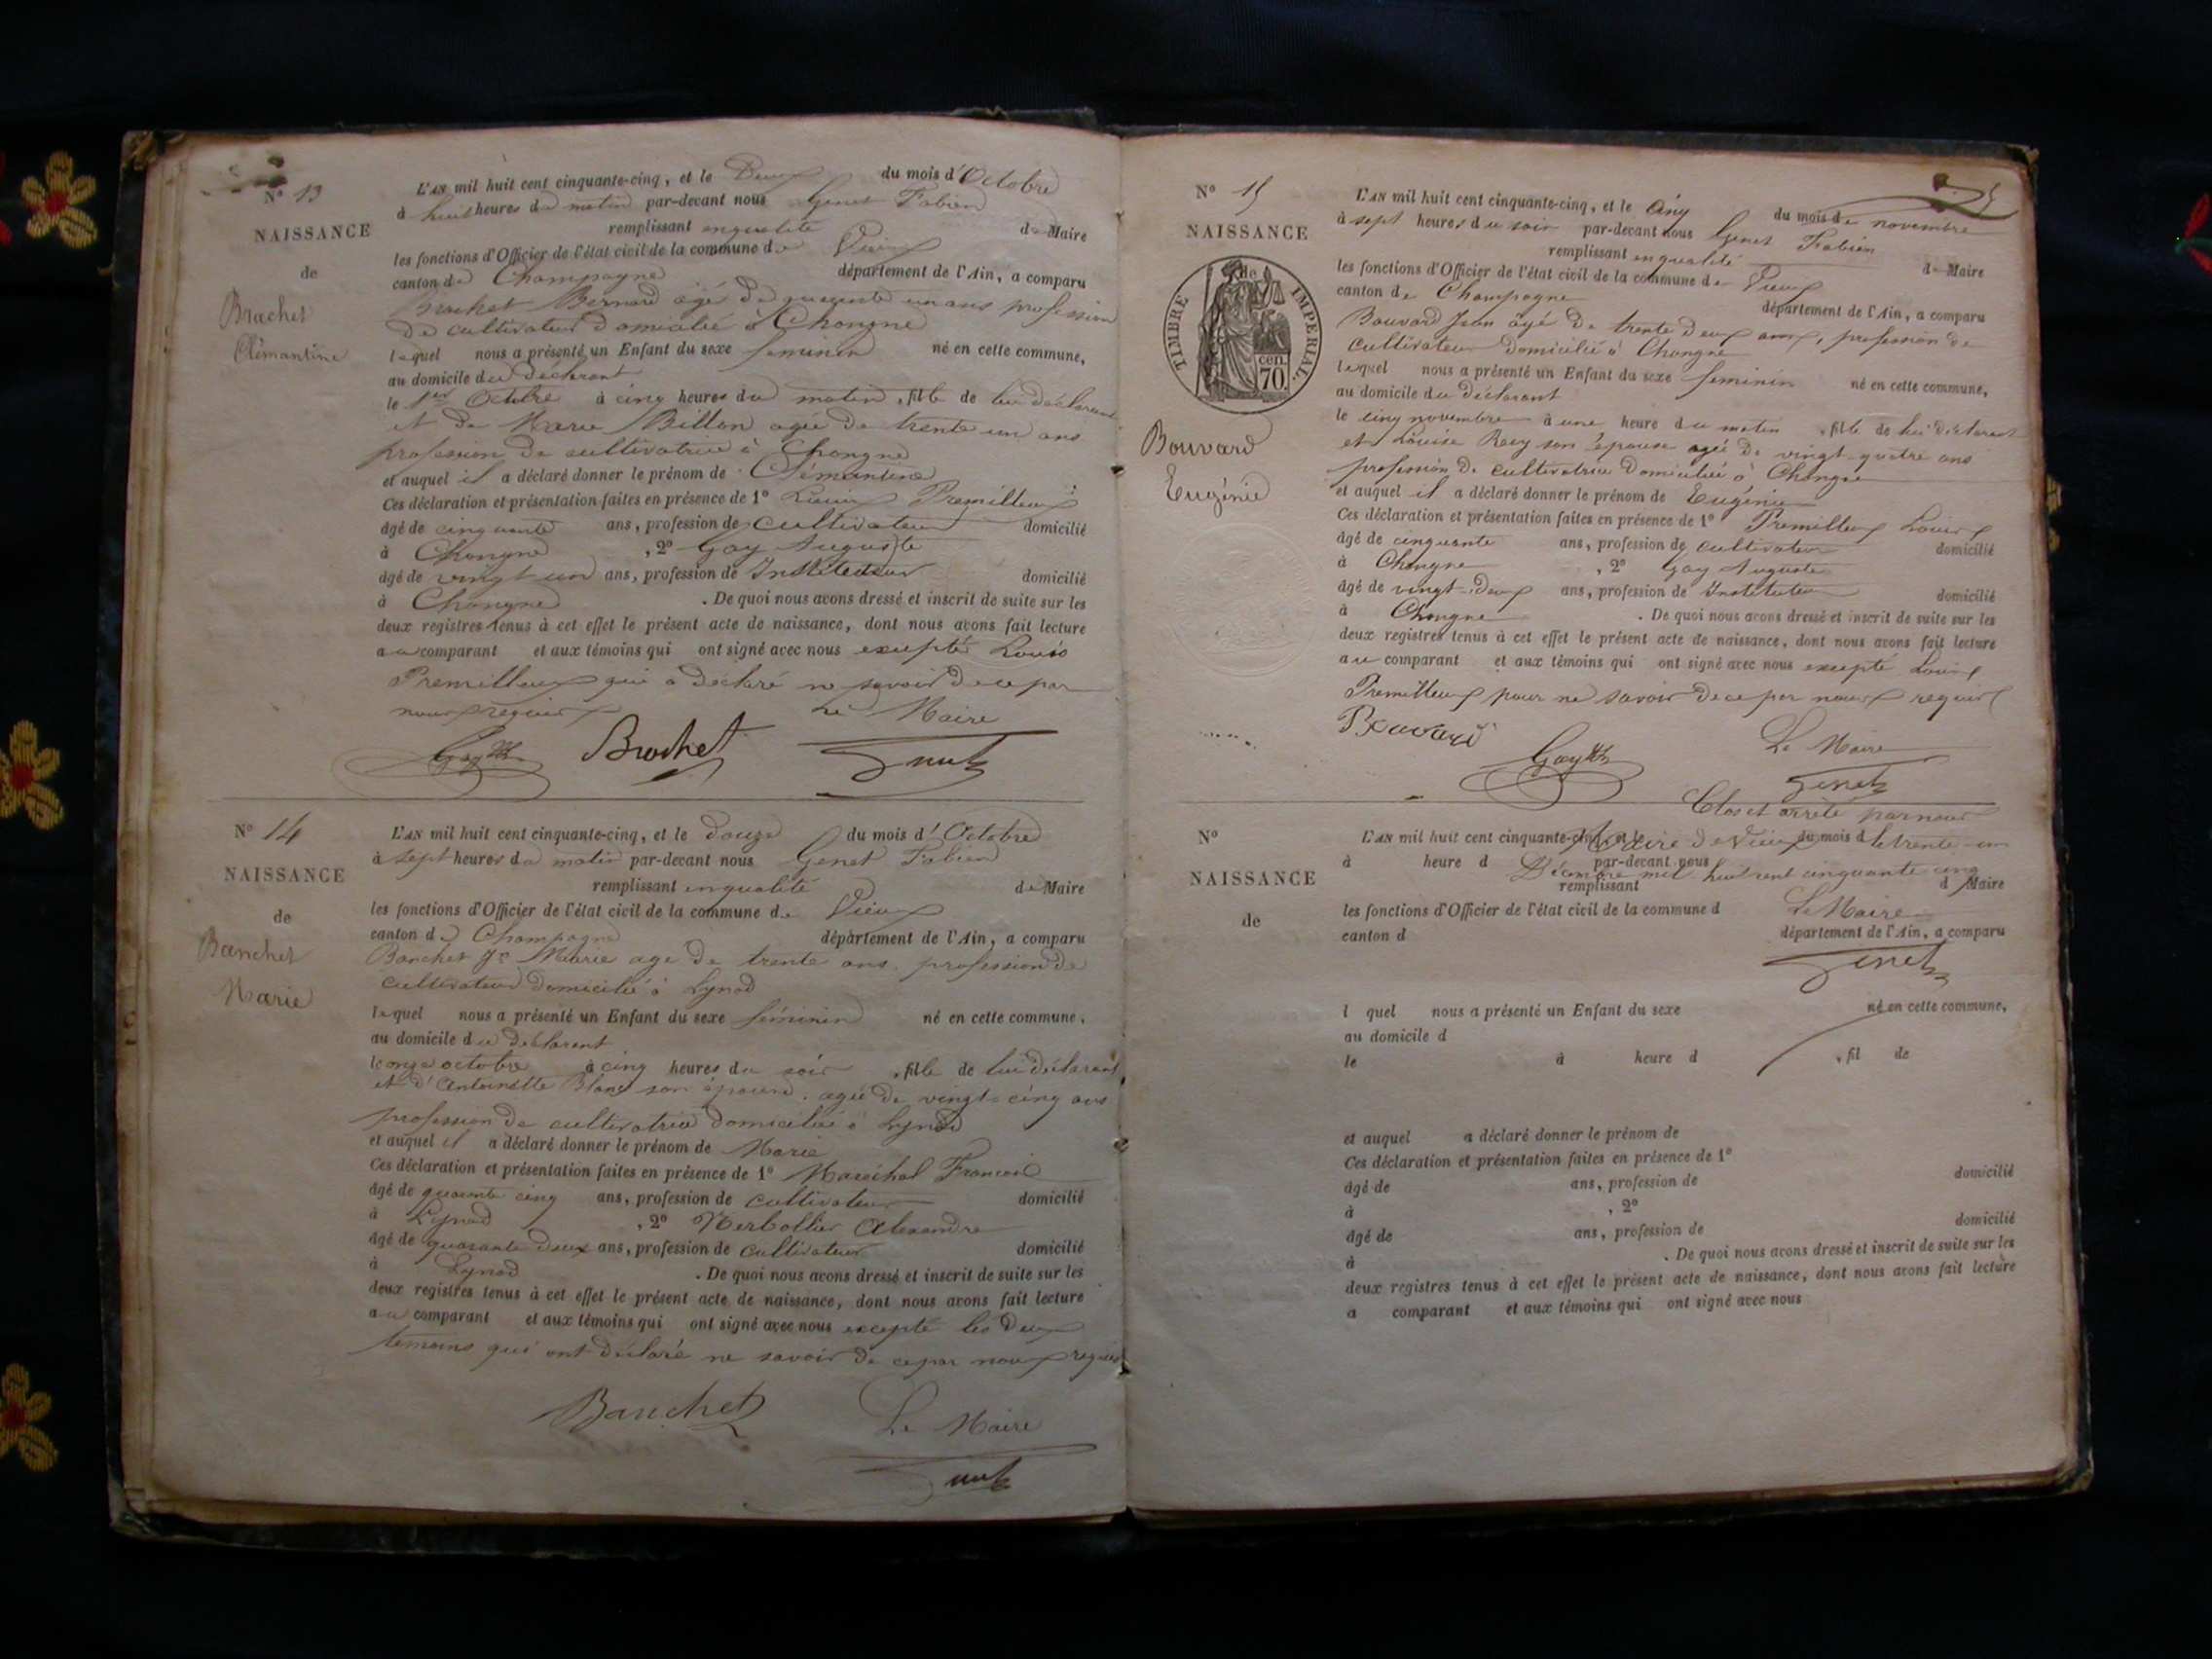 N° 13
NAISSANCE
de
Brachet
Clémantine
L'AN mil huit cent cinquante-cinq, et le Deux du mois d'Octobre
à huit heures du matin par-devant nous Genet Fabien
remplissant enqualité de Maire
les fonctions d'Officier de l'état civil de la commune de Vieux
canton de Champagne département de l'Ain, a comparu
Brachet Bernard âgé de quarante un ans profession
de cultivateur domicilié à Chongne
lequel nous a présenté un Enfant du sexe feminin né en cette commune,
au domicile du déclarant
le 1er Octobre à cinq heures du matin, fille de lui déclarant
et de Marie Billon agée de trente un ans
profession de cultivatrice à Chongne
et auquel il a déclaré donner le prénom de Clémantine
Ces déclaration et présentation faites en présence de 1° Louis Premilleux
âgé de cinquante ans, profession de cultivateur domicilié
à Chongne, 2° Gay Auguste
âgé de vingt un ans, profession de Instituteur domicilié
à Chongne. De quoi nous avons dressé et inscrit de suite sur les
deux registres tenus à cet effet le présent acte de naissance, dont nous avons fait lecture
au comparant et aux témoins qui ont signé avec nous excepté Louis
Premilleux qui a déclaré ne savoir de ce par
nous requis Le Maire
Gay Brachet Genet
N° 14
NAISSANCE
de
Banchet
Marie
L'AN mil huit cent cinquante-cinq, et le douze du mois d'Octobre
à sept heures du matin par-devant nous Genet Fabien
remplissant enqualité de Maire
les fonctions d'Officier de l'état civil de la commune de Vieux
canton de Champagne département de l'Ain, a comparu
Banchet Je Marie age de trente ans profession de
cultivateur domicilié à Lynod
lequel nous a présenté un Enfant du sexe féminin né en cette commune,
au domicile du déclarant
le onze octobre à cinq heures du soir, fille de lui déclarant
et d'Antoinette Blanc son épouse agée de vingt-cinq ans
profession de cultivatrice domiciliée à Lynod
et auquel il a déclaré donner le prénom de Marie
Ces déclaration et présentation faites en présence de 1° Maréchal François
âgé de quarante cinq ans, profession de cultivateur domicilié
à Lynod, 2° Alexandre
âgé de quarante deux ans, profession de cultivateur domicilié
à Lynod. De quoi nous avons dressé et inscrit de suite sur les
deux registres tenus à cet effet le présent acte de naissance, dont nous avons fait lecture
au comparant et aux témoins qui ont signé avec nous excepté les deux
témoins qui ont déclaré ne savoir de ce par nous requis
Banchet Le Maire
Genet
N° 15
NAISSANCE
de
TIMBRE IMPERIAL.
cen.
70.
Bouvard
Eugénie
L'AN mil huit cent cinquante-cinq, et le Cinq du mois de novembre
à sept heures du soir par-devant nous Genet Fabien
remplissant enqualité de Maire
les fonctions d'Officier de l'état civil de la commune de Vieux
canton de Champagne département de l'Ain, a comparu
Bouvard Jean âgé de trente deux ans, profession de
cultivateur domicilié à Chongne
lequel nous a présenté un Enfant du sexe feminin né en cette commune,
au domicile du déclarant
le cinq novembre à une heure du matin, fille de lui déclarant
et Louise Rey son épouse agée de vingt-quatre ans
profession de cultivatrice domiciliée à Chongne
et auquel il a déclaré donner le prénom de Eugénie
Ces déclaration et présentation faites en présence de 1° Premilleux Louis
âgé de cinquante ans, profession de cultivateur domicilié
à Chongne, 2° Gay Auguste
âgé de vingt-deux ans, profession de Instituteur domicilié
à Chongne. De quoi nous avons dressé et inscrit de suite sur les
deux registres tenus à cet effet le présent acte de naissance, dont nous avons fait lecture
au comparant et aux témoins qui ont signé avec nous excepté Louis
Premilleux pour ne savoir de ce par nous requis
Bouvard Gay Le Maire
Genet
Clos et arrêté par nous
Maire de Vieux le trente-un
Décembre mil huit cent cinquante cinq
Le Maire
Genet
N°
NAISSANCE
de
L'AN mil huit cent cinquante-cinq, et le du mois d
à heure d par-devant nous
remplissant d Maire
les fonctions d'Officier de l'état civil de la commune d
canton d département de l'Ain, a comparu
l quel nous a présenté un Enfant du sexe né en cette commune,
au domicile d
le à heure d , fil de
et auquel a déclaré donner le prénom de
Ces déclaration et présentation faites en présence de 1°
âgé de ans, profession de domicilié
à , 2°
âgé de ans, profession de domicilié
à . De quoi nous avons dressé et inscrit de suite sur les
deux registres tenus à cet effet le présent acte de naissance, dont nous avons fait lecture
a comparant et aux témoins qui ont signé avec nous